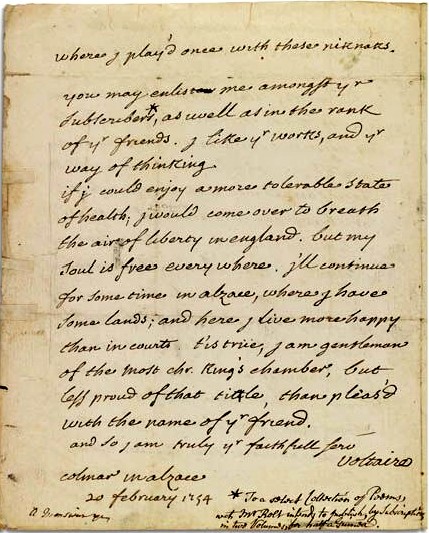 where j play'd once with these niknaks.
you may enlist me amongst yr
subscribers*, as well as in the rank
of yr friends. j like yr works, and yr
way of thinking
if j could enjoy a more tolerable state
of health, j would come over to breath
the air of liberty in england. but my
soul is free every where. j'll continue
for some time in alzace, where j have
some lands; and here j live more happy
than in courts t'is true, j am gentleman
of the most chr. King's chamber, but
less proud of that title, than pleas'd
with the name of yr friend.
and so j am truly yr faithfull serv
Voltaire
colmar in alzace
20 february 1754
* To a select Collection of Poems,
wch Mr Rolt intends to publish, by Subscription
in two Volumes, for half a Guinea.
a monsieur